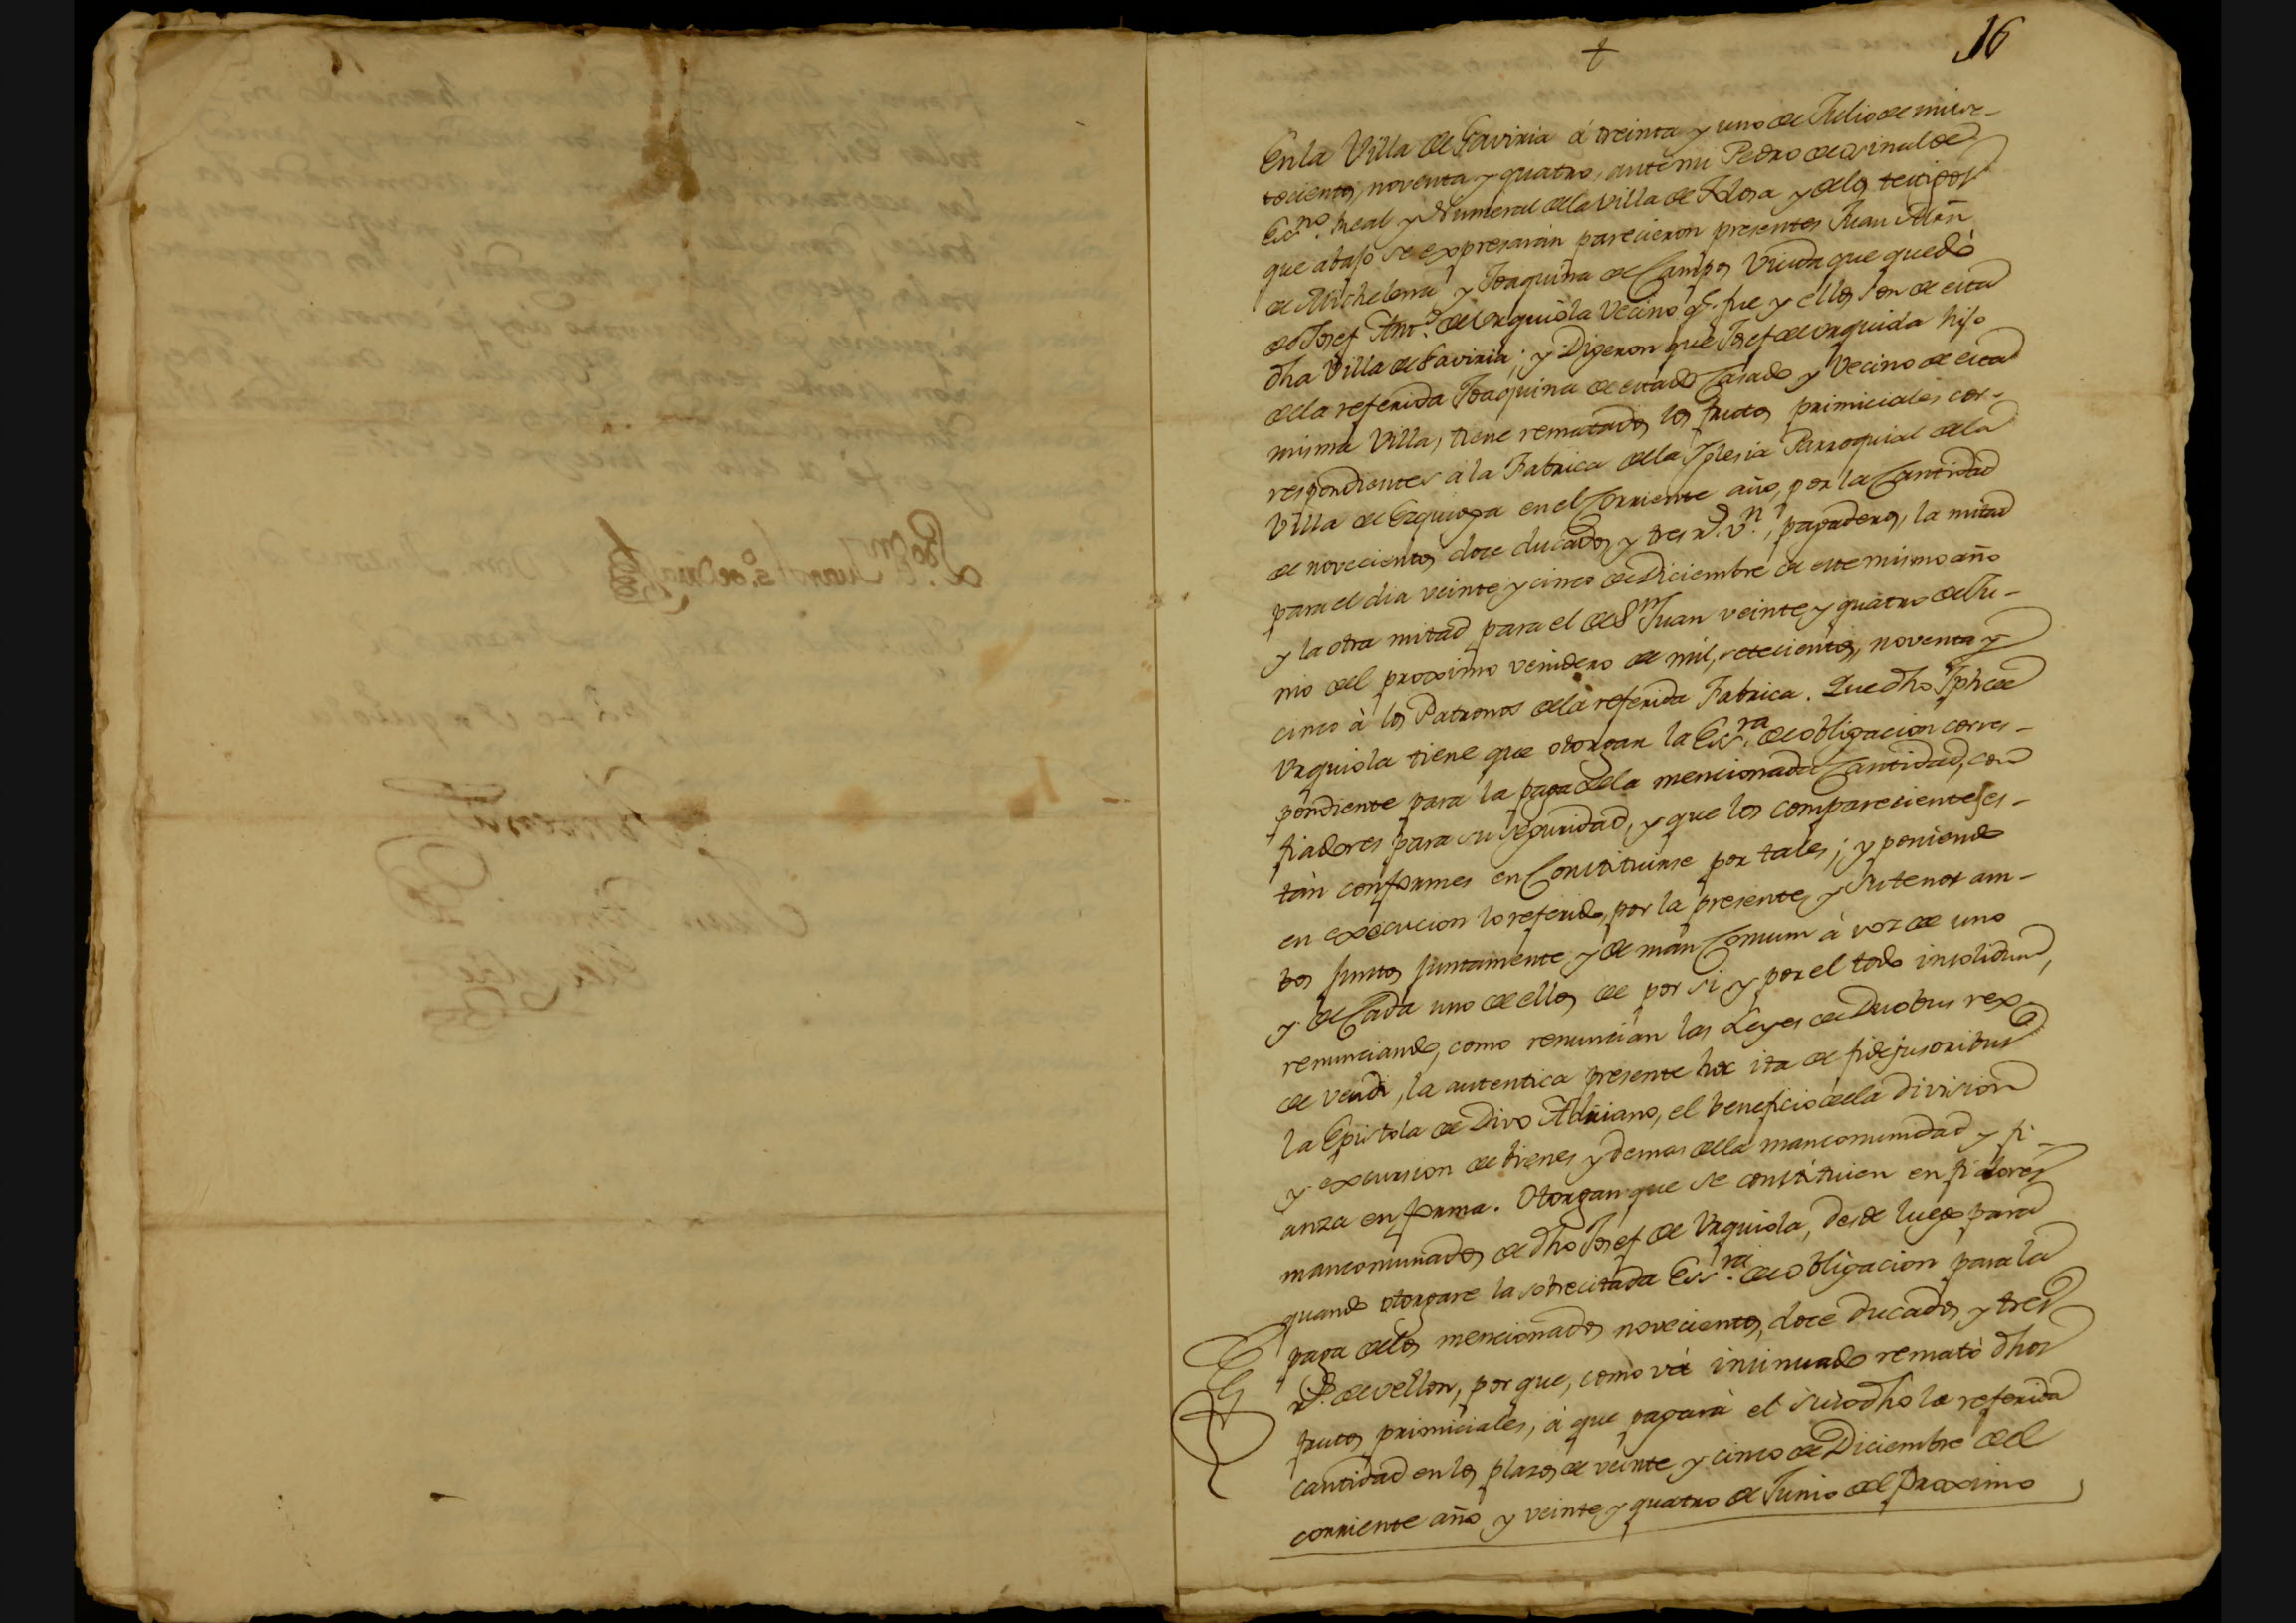 16
+
En la Villa de Gaviria á treinta y uno de Julio de mil se-
tecientos, noventa y quatro, ante mi Pedro de
Ess.no Real y Numeral de la Villa de y de los testigos
que abajo se expresarán parecieron presentes Juan
de Michelena y Joaquina de Campos Viuda que quedò
de Josef Ant.o de Urquiola Vecino q.e fue y ellos son de esta
dha Villa de Gaviria; y Digeron que Josef de Urquiola hijo
de la referida Joaquina de estado Casado y Vecino de esta
misma Villa, tiene rematados los frutos primiciales cor-
respondientes a la Fabrica de la Iglesia Parroquial de la
Villa de Ezquioga en el Corriente año, por la Cantidad
de novecientos doce ducados y tres r.s v.n, pagaderos, la mitad
para el dia veinte y cinco de Diciembre de este mismo año
y la otra mitad para el de S.n Juan veinte y quatro de Ju-
nio del proximo venidero de mil, setecientos, noventa y
cinco à los Patronos de la referida Fabrica. Que dho Jph de
Urquiola tiene que otorgar la Ess.ra de obligacion corres-
pondiente para la paga de la mencionada Cantidad, con
fiadores para su seguridad, y que los comparecientes es-
tàn conformes en Constituirse por tales; y poniendo
en execucion lo referido, por la presente y su tenor am-
bos juntos juntamente, y de man Comum à voz de uno
y de Cada uno de ellos de por si y por el todo insolidum,
renunciando, como renuncian las Leyes de Duobus rex
de vendi, la autentica presente hoc ita de fidejusoribus
la Epistola de Divo Adriano, el beneficio de la division
y excursion de bienes y demas de la mancomunidad y fi-
anza en forma. Otorgan que se constituien en fiadores
mancomunados de dho Josef de Urquiola, desde luego para
quando otorgare la sobrecitada Ess.ra de obligacion para la
paga de los mencionados novecientos, doce ducados y tres
r.s de vellon, por que, como và insinuado rematò dhos
frutos primiciales, à que pagarà el susodho la referida
cantidad en los plazos de veinte y cinco de Diciembre del
corriente año y veinte y quatro de Junio del Proximo